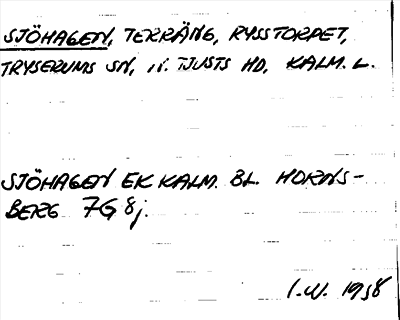 SJÖHAGEN, TERRÄNG, RYSSTORPET,
TRYSERUMS SN, N. TJUSTS HD, KALM. L.
SJÖHAGEN EK KALM. BL. HORNS-
BERG 7G 8j.
I.W. 1958